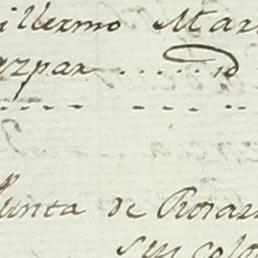 illermo Mar
azpar ...... 10
Junta de Rozar
sin colo